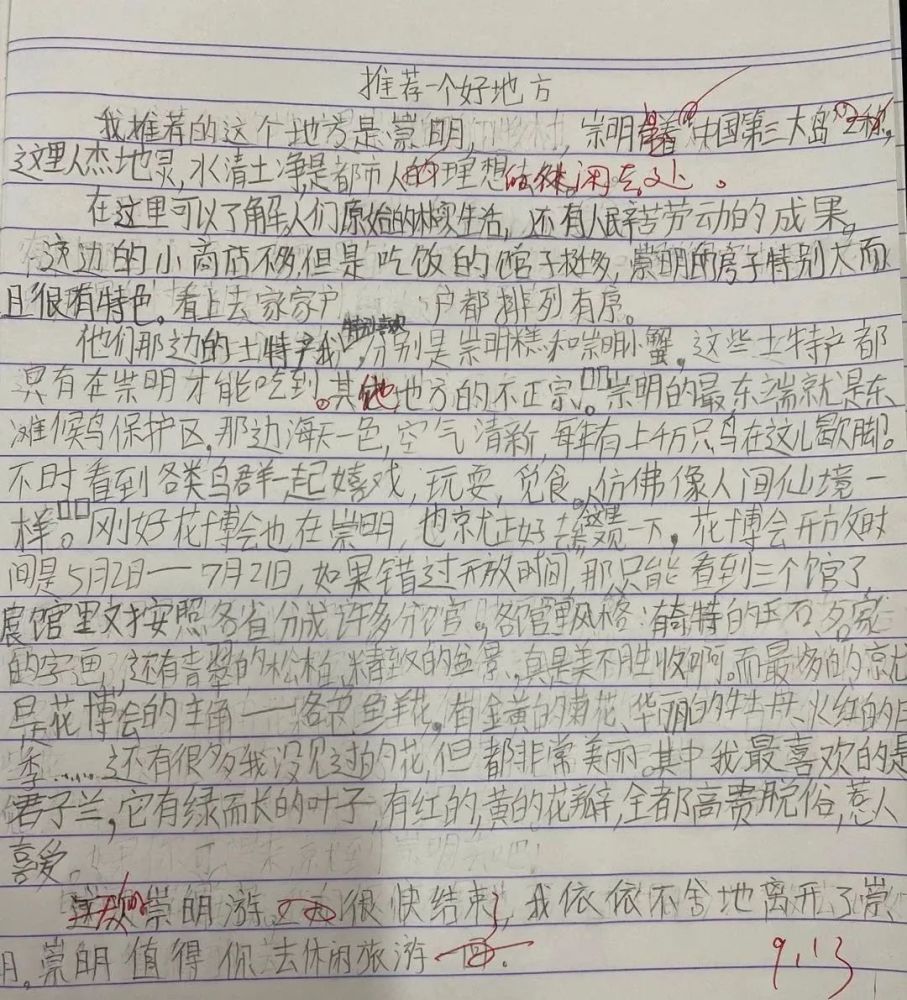 推荐一个好地方
我推荐的这个地方是崇明,崇明有着中国第三大岛之称,
这里人杰地灵,水清土净,是都市人的理想休闲去处。
在这里可以了解人们原始的朴实生活,还有人民辛苦劳动的成果。
这边的小商店不多,但是吃饭的馆子挺多,崇明的房子特别大而
且很有特色。看上去家家户户都排列有序。
他们那边的土特产我特别喜欢,分别是崇明糕和崇明小蟹,这些土特产都
只有在崇明才能吃到。其他地方的不正宗。崇明的最东端就是东
滩候鸟保护区,那边海天一色,空气清新,每年有上千万只鸟在这儿歇脚。
不时看到各类鸟群一起嬉戏,玩耍,觅食。仿佛像人间仙境一
样。刚好花博会也在崇明,也就正好去参观一下,花博会开放时
间是5月2日一7月21日,如果错过开放时间,那只能看到三个馆了,
展馆里又按照各省分成许多分馆。各馆风格:有奇特的玉石、名家
的字画,还有青翠的松柏,精致的盆景,真是美不胜收啊。而最多的就
是花博会的主角——各色鲜花,有金黄的菊花、华丽的牡丹、火红的月
季……还有很多我没见过的花,但都非常美丽,其中我最喜欢的是
君子兰,它有绿而长的叶子,有红的,黄的花瓣,全都高贵脱俗,惹人
喜爱。
这次的崇明游很快结束了,我依依不舍地离开了崇
明。崇明值得你去休闲旅游一西。
9.13